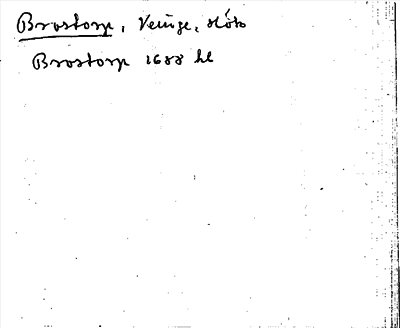 Brostorp, Veinge, Höks
Brostorp 1688 hl